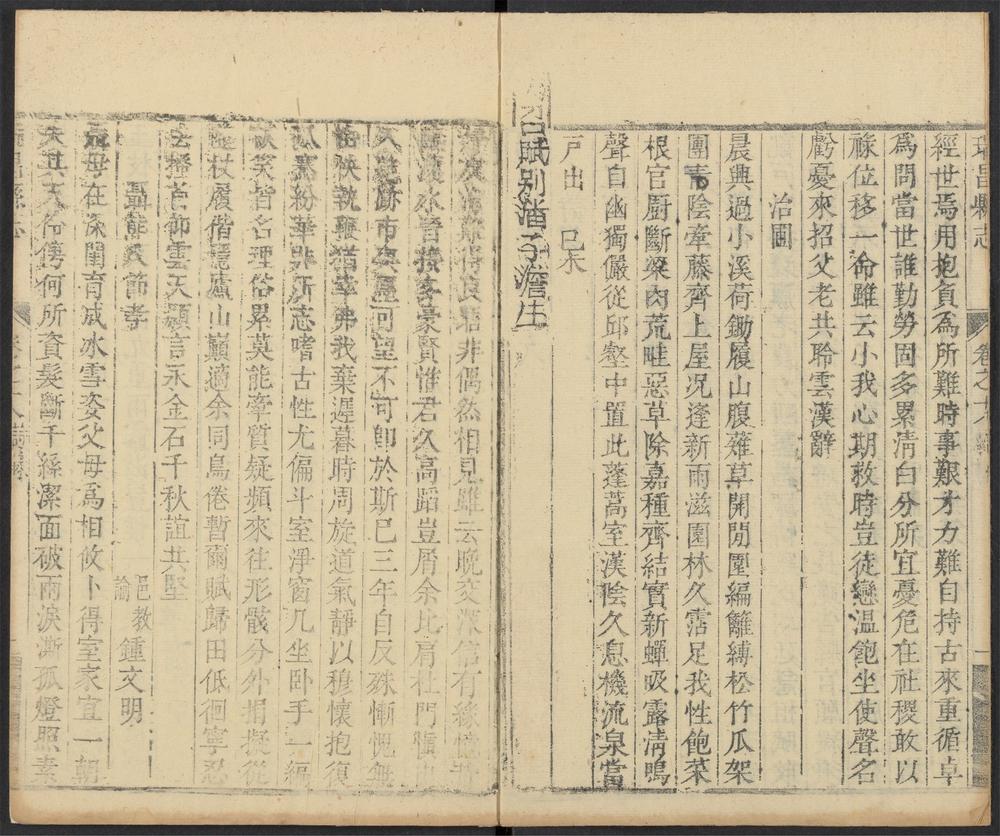 昌縣志
卷之十八
經世焉用抱負為所難時事艱才力難自持古來重循卓
為問當世誰勤勞固多累清白分所宜憂危在社稷敢以
祿位移一命雖云小我心期救時豈徒戀溫飽坐使聲名
虧憂來招父老共聆雲漢辭
治圃
晨興過小溪荷鋤履山腹薙草開閒園編籬縛松竹瓜架
團青陰牽藤齊上屋況逢新雨滋園林久霑足我性飽菜
根官廚斷粱肉荒畦惡草除嘉種齊結實新蟬吸露清鳴
聲自幽獨儼從邱壑中置此蓬蒿室漢陰久息機流泉當
戶出 己未
占賦别潘子澹生
難得良非偶然相見雖云晚交深信有緣
水晉接多豪賢惟君久高蹈豈屑余比肩杜門
市奕可望不可即於斯已三年自反殊慚愧無
怏執鞭猶幸弗我棄遲暮時周旋道氣靜以穆懷抱復
紛華非所志嗜古性尤偏斗室淨窗几坐臥手一編
笑皆名理俗累莫能牽質疑頻來往形骸分外捐擬從
杖履偕隱廬山巔適余同鳥倦暫爾賦歸田低徊寧忍
雲天願言永金石千秋誼共堅
聶熊氏節孝 邑教諭 鍾文明
母在深閨育成冰雪姿父母為相攸卜得室家宜一朝
何所資髮斷千絲潔面破雨淚澌孤燈照素
昌縣志
卷之十八